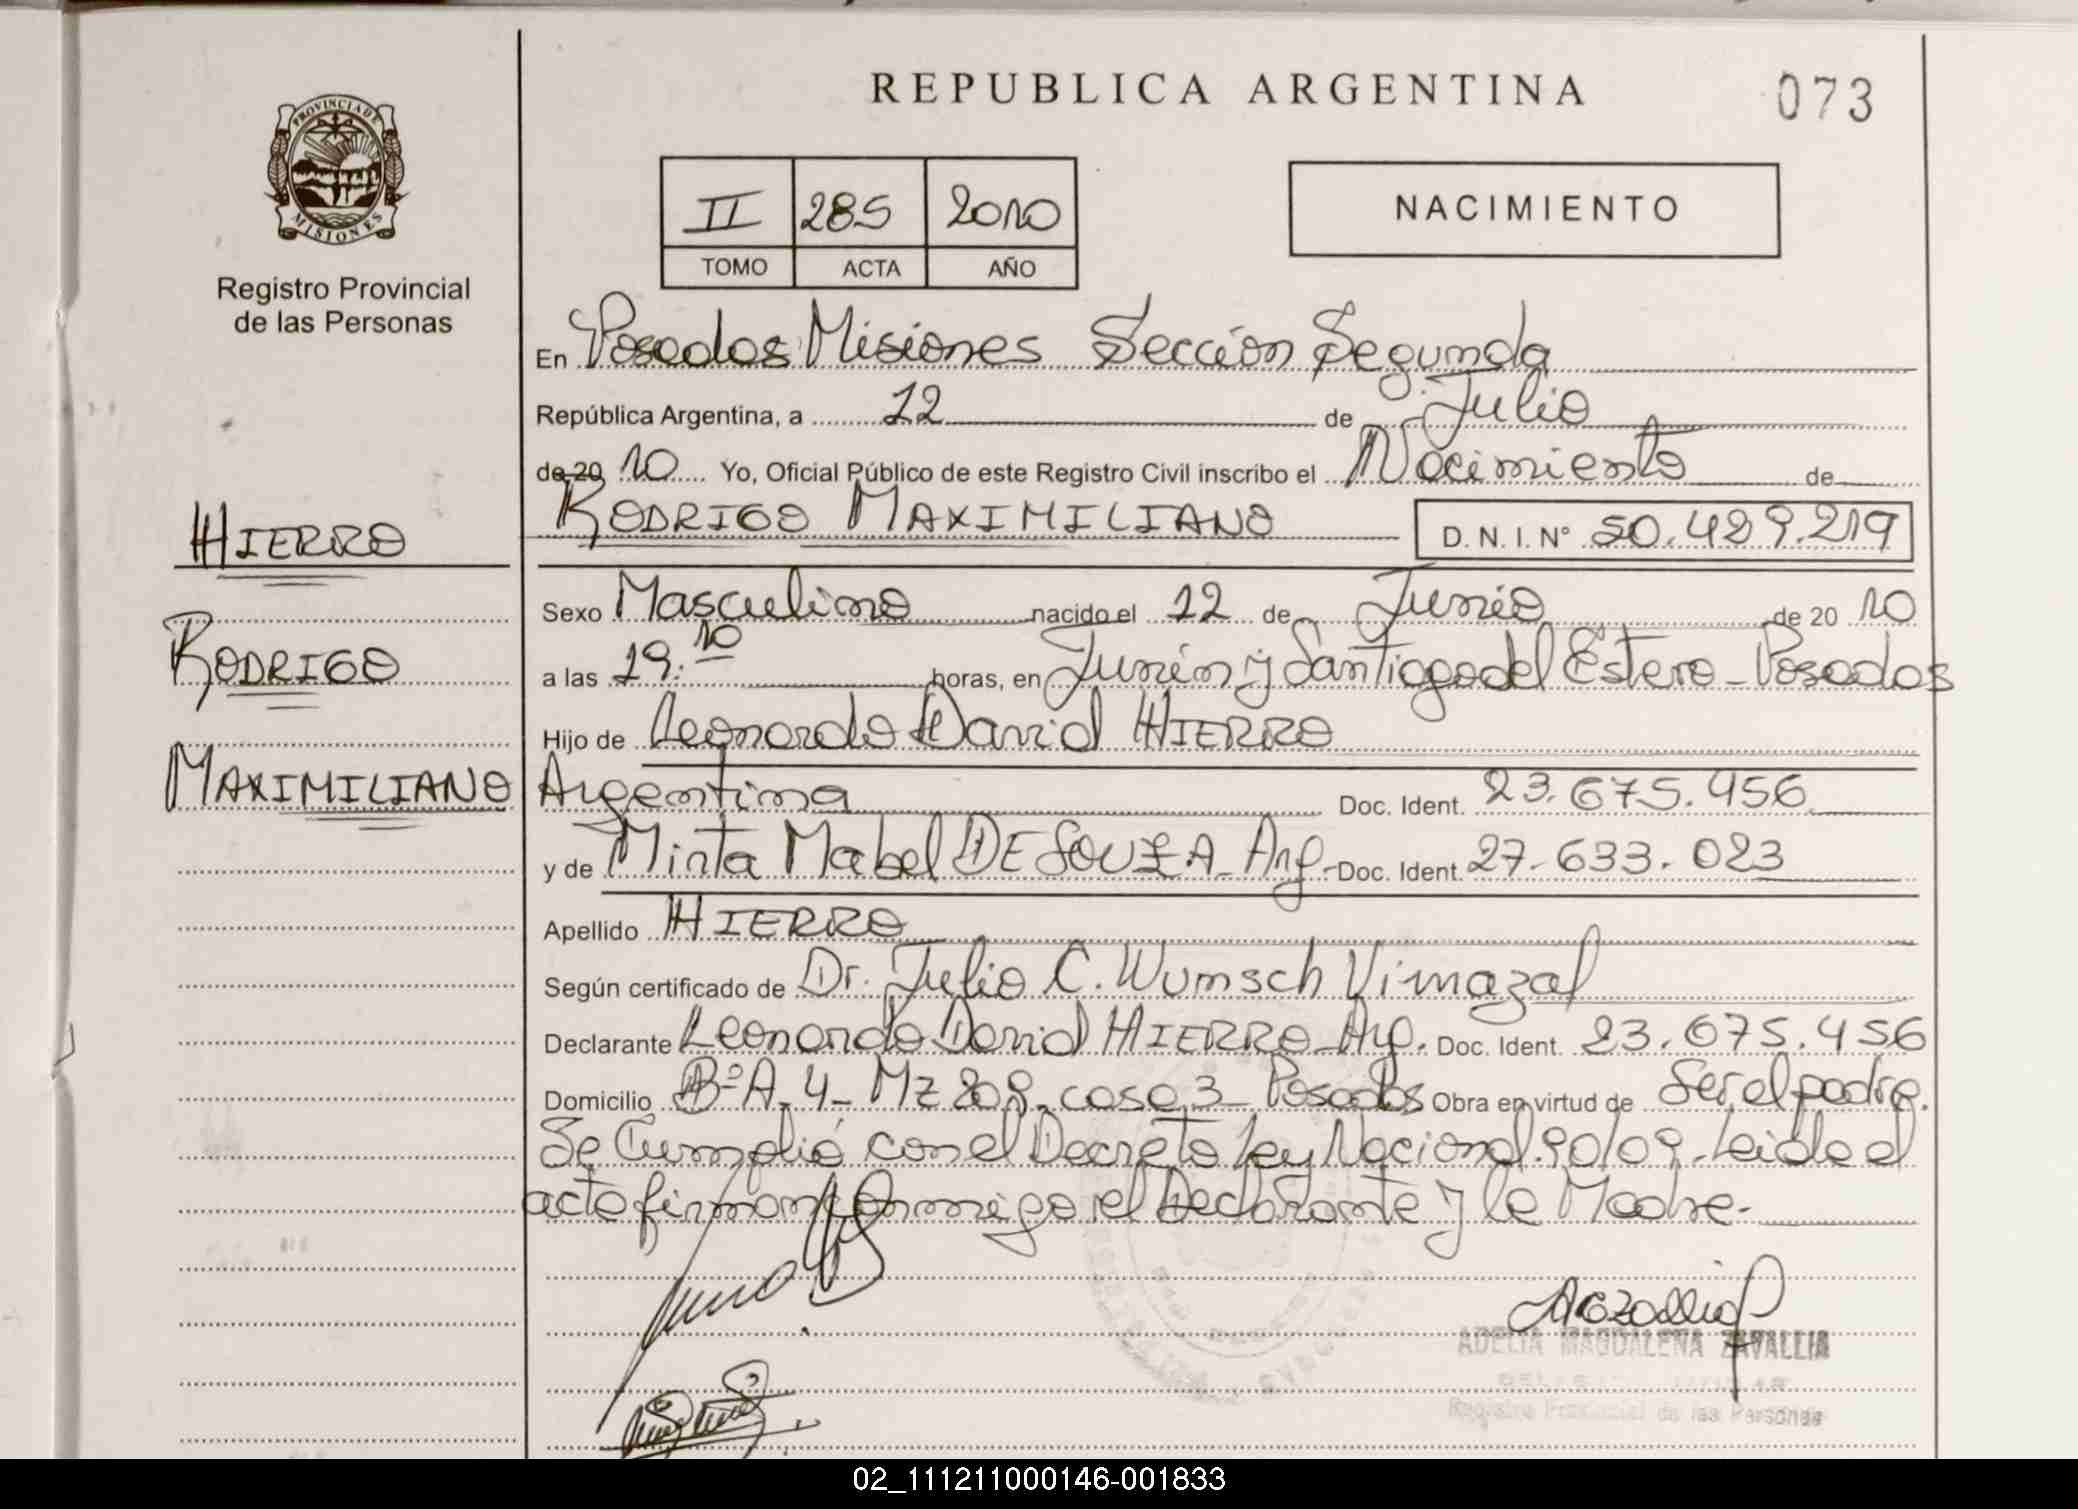 REPUBLICA ARGENTINA
073
PROVINCIA DE
MISIONES
Registro Provincial
de las Personas
II 285 2010
TOMO ACTA AÑO
NACIMIENTO
En Posadas Misiones Sección Segunda
República Argentina, a 12 de Julio
de 20 10 Yo, Oficial Público de este Registro Civil inscribo el Nacimiento de
HIERRO
RODRIGO MAXIMILIANO
D. N. I. N° 50.429.219
Sexo Masculino nacido el 12 de Junio de 20 10
RODRIGO
a las 19.10 horas, en Junín y Santiago del Estero - Posadas
Hijo de Leonardo David HIERRO
MAXIMILIANO
Argentina Doc. Ident. 23.675.456
y de Mirta Mabel DE SOUZA - Arg - Doc. Ident. 27.633.023
Apellido HIERRO
Según certificado de Dr. Julio C. Wunsch Vimazal
Declarante Leonardo David HIERRO - Arg. Doc. Ident. 23.675.456
Domicilio B° A. 4 - Mz 209 - casa 3 - Posadas Obra en virtud de Ser el padre.
Se Cumplió con el Decreto Ley Nacional 90/09 - Leida el
acta firman conmigo el Declarante y la Madre.-
ADELIA MAGDALENA ZAVALLIA
Registro Provincial de las Personas
02_111211000146-001833